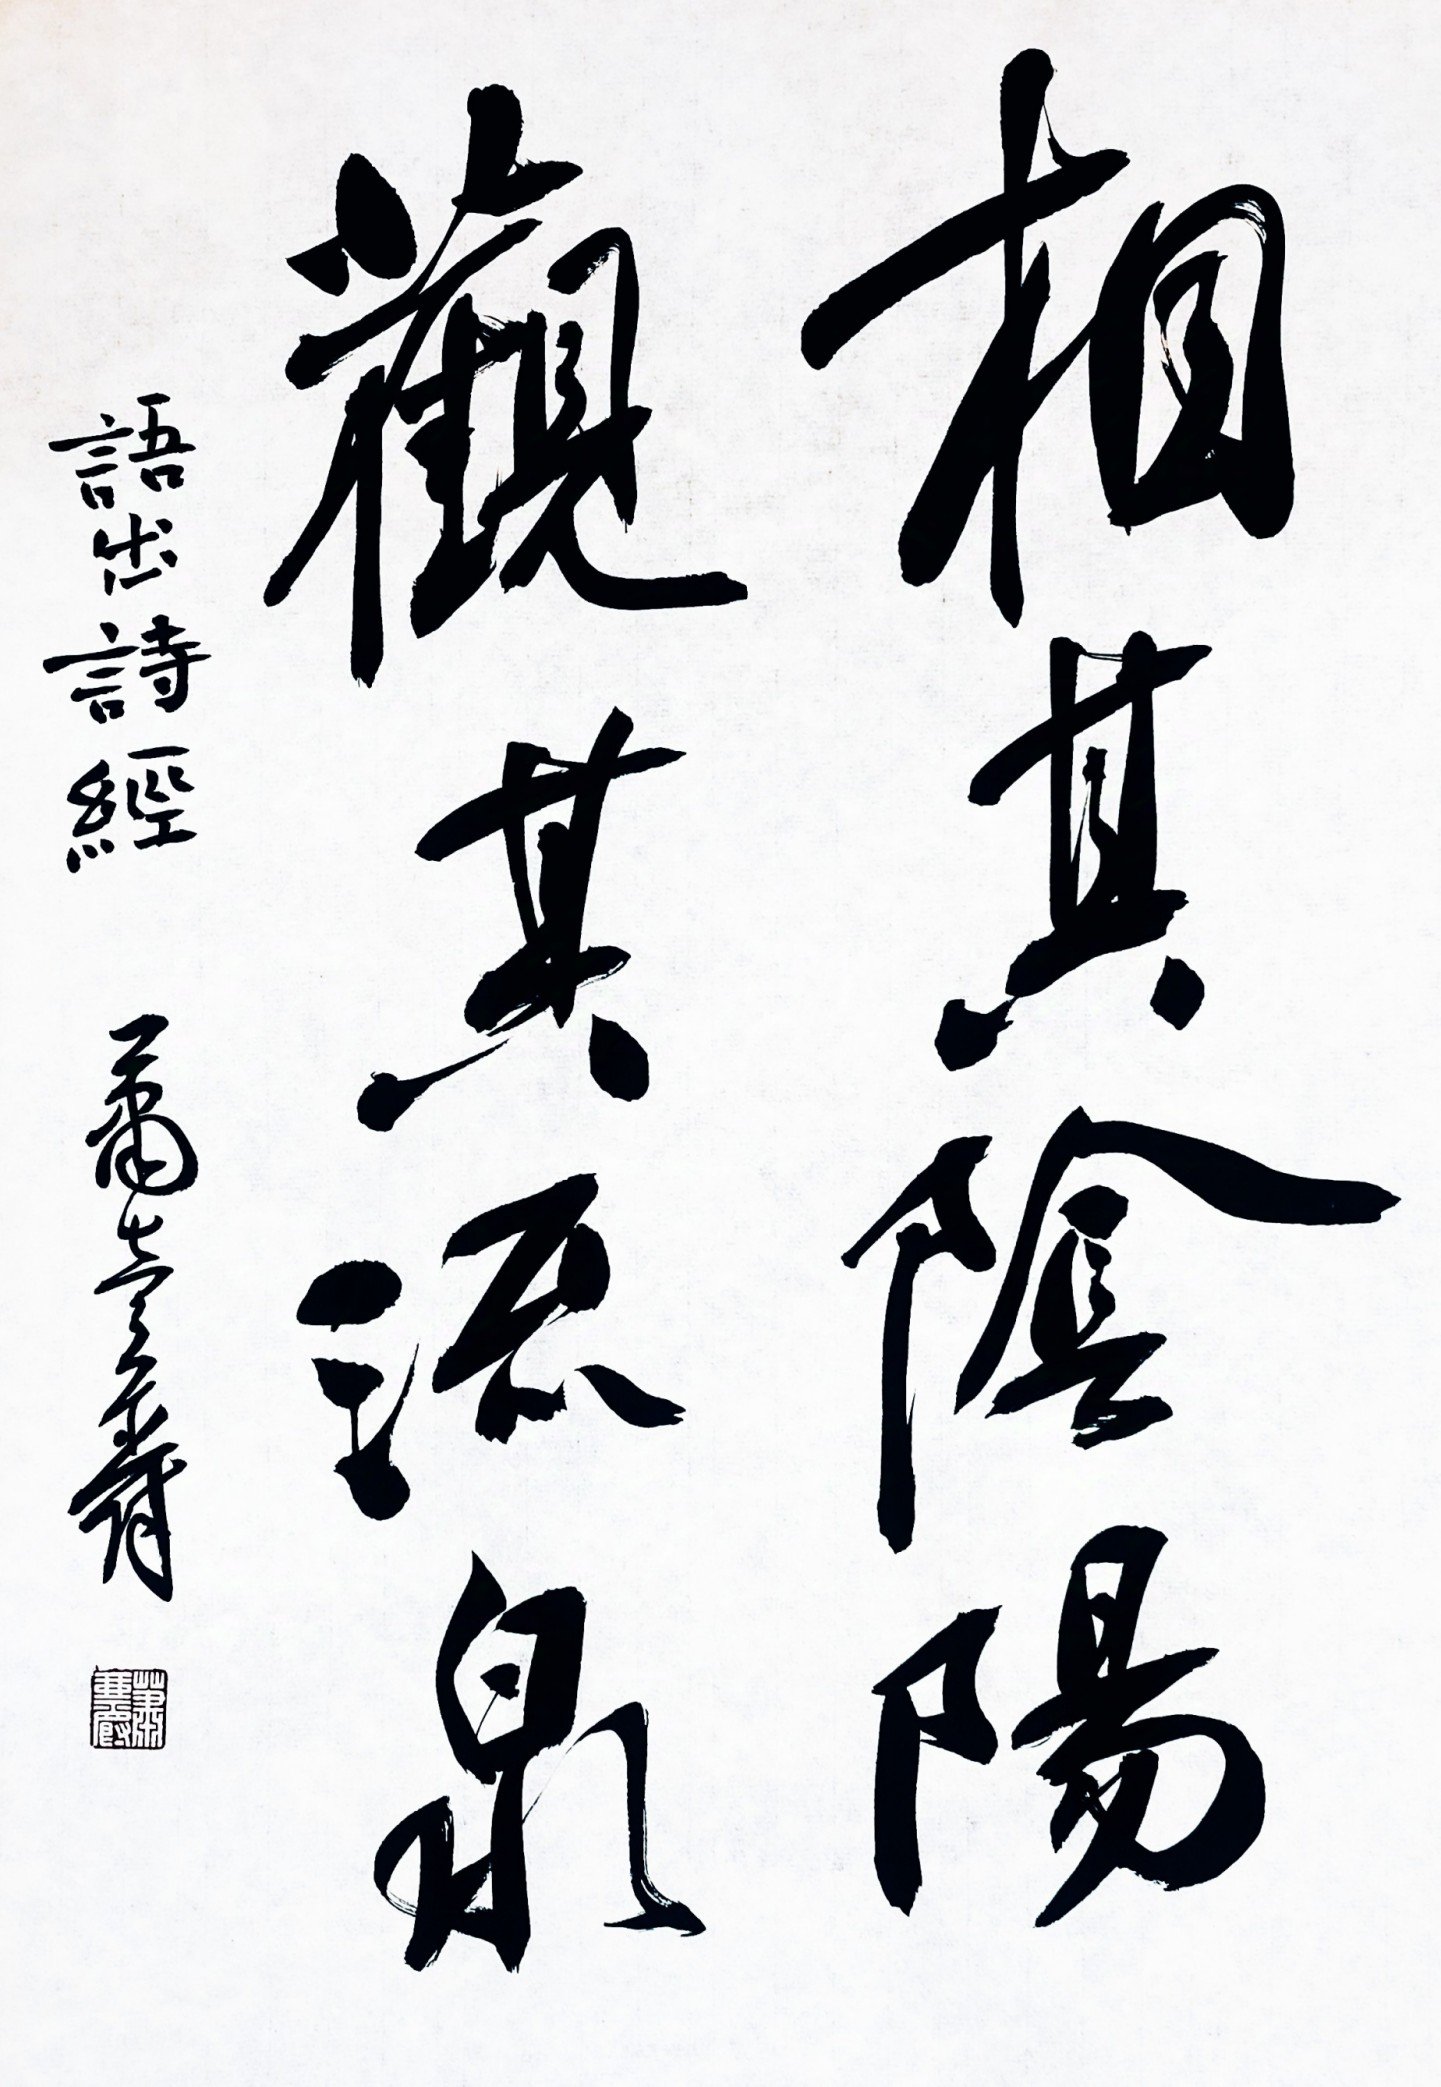 相其陰陽
觀其流泉
語出詩經
蕭
蕭